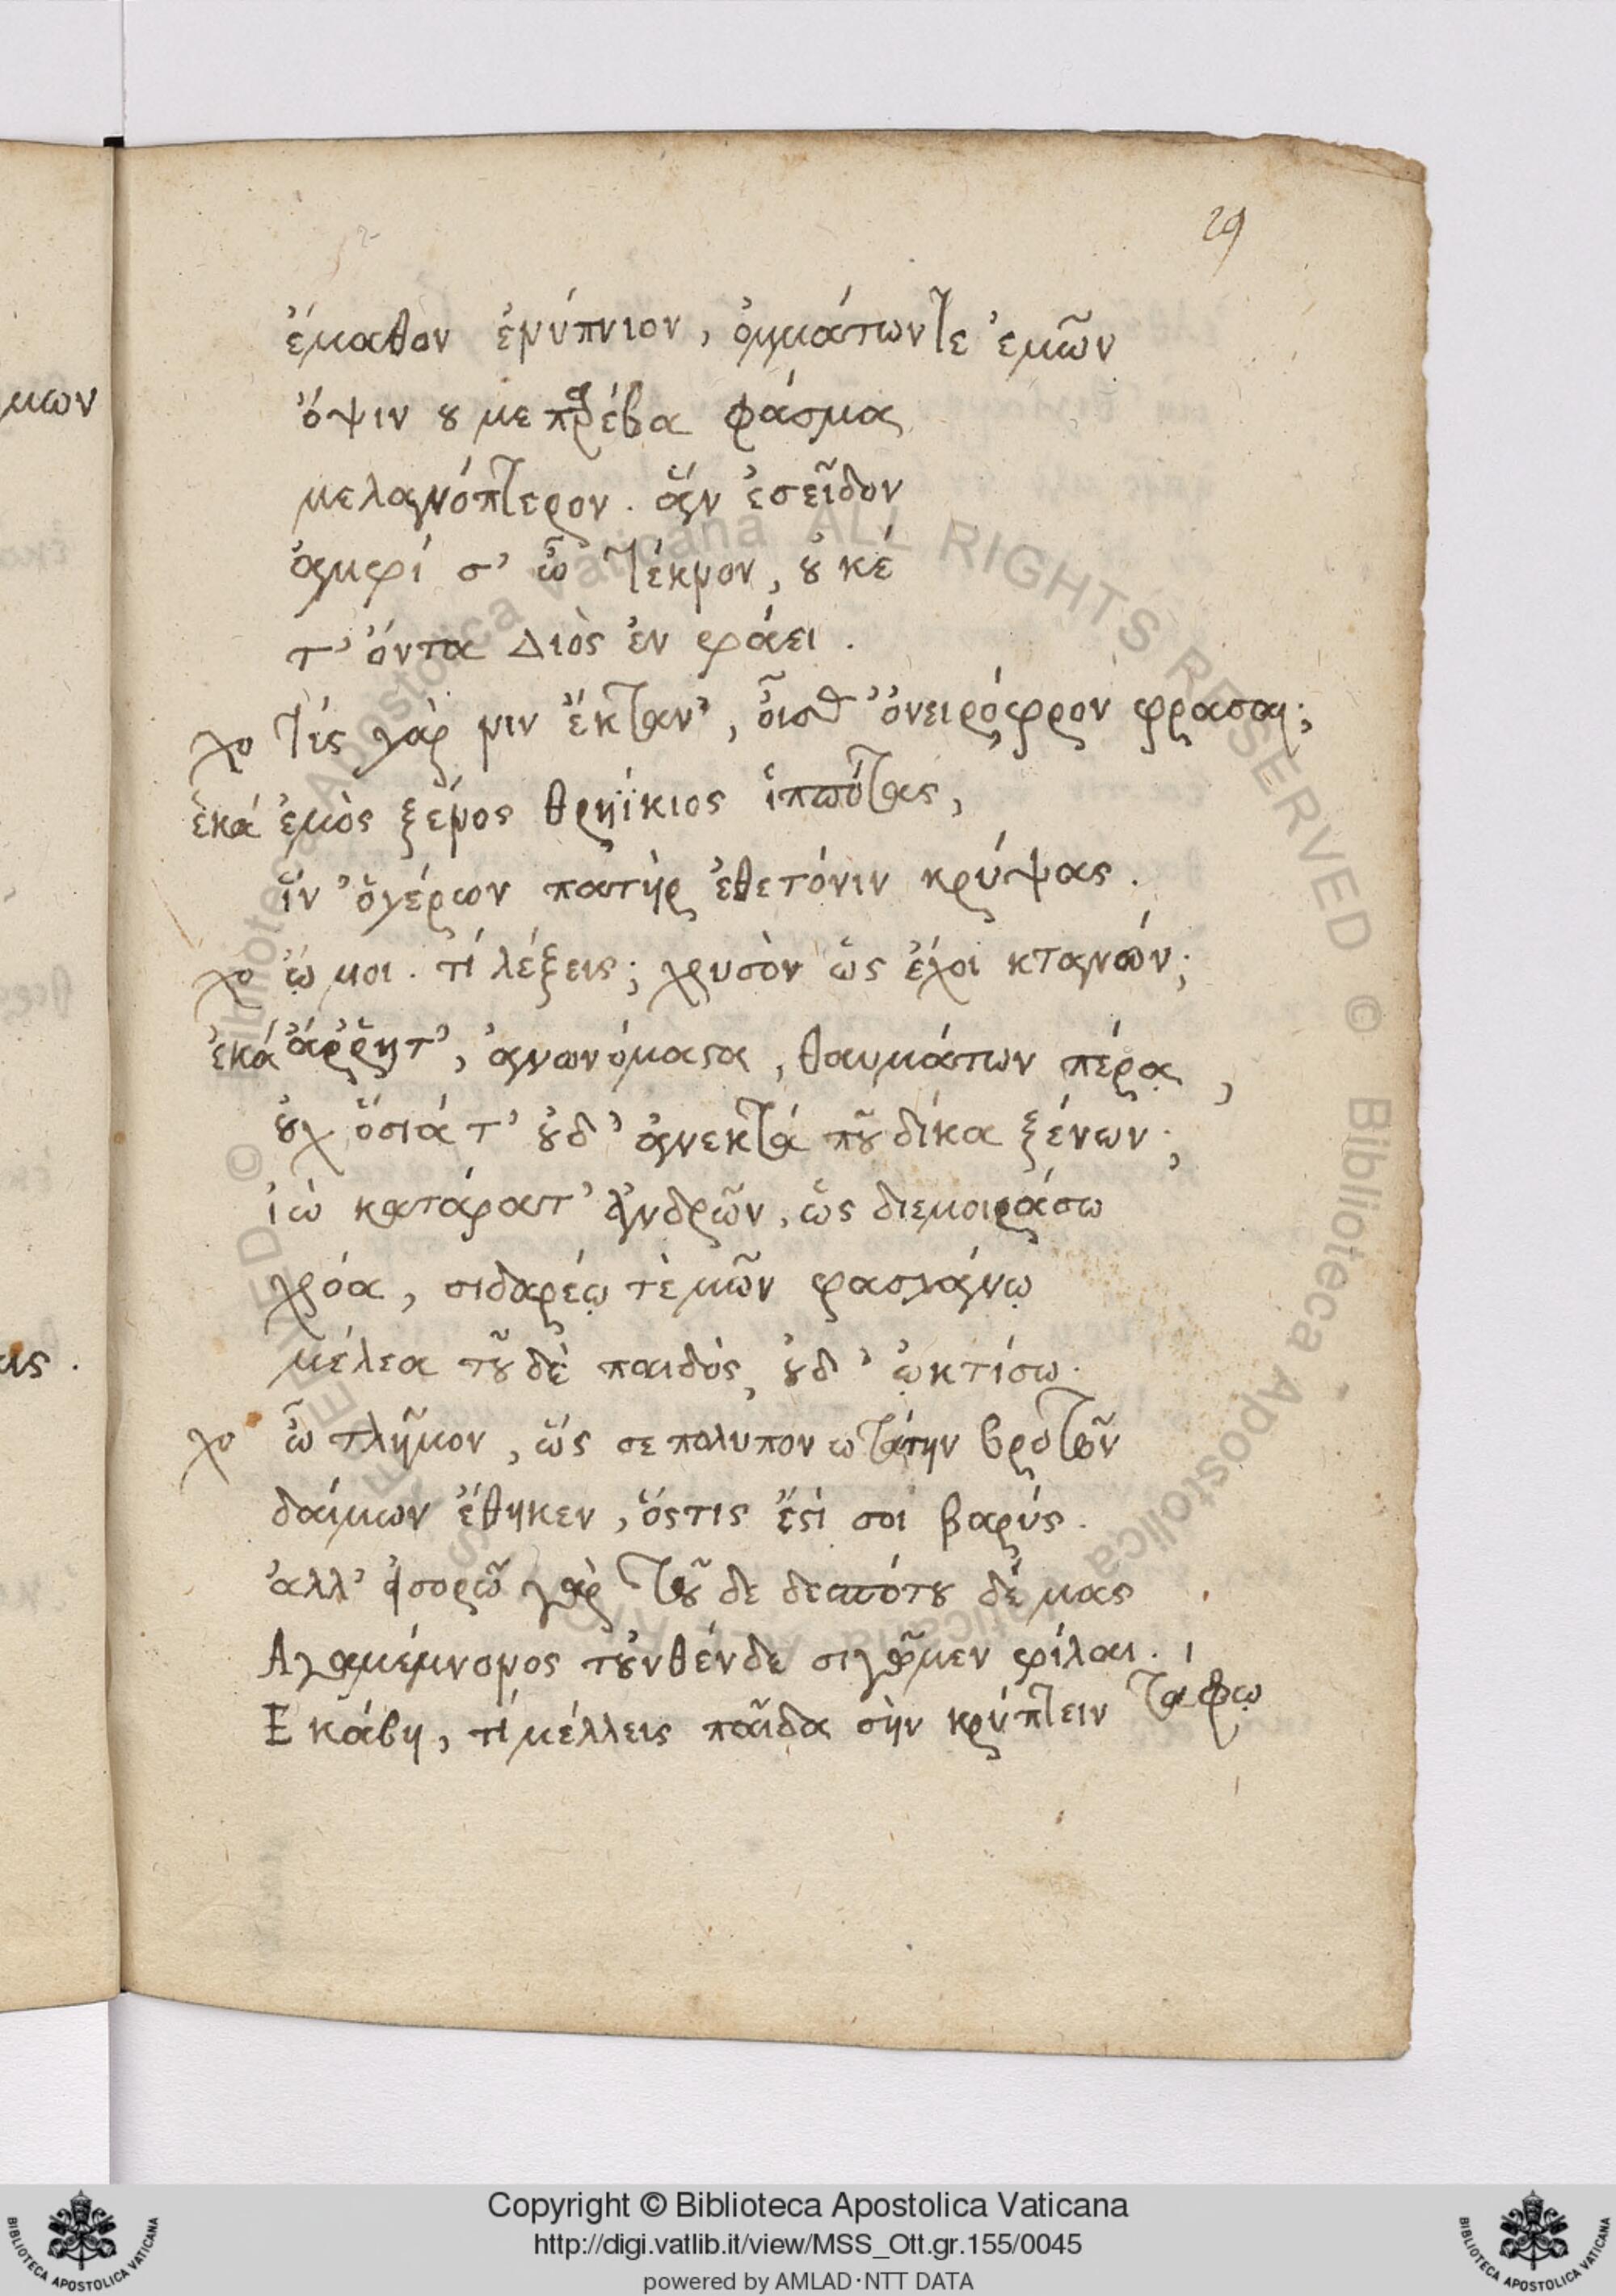 29
ἔμαθον ἐνύπνιον, ὀμμάτων τε ἐμῶν
ὄψιν ȣ με παρέβα φάσμα
μελανόπτερον. ἃν ἐσεῖδον
ἀμφί σ' ὦ τέκνον, ȣ̓κέ
τ' ὄντα Διὸς ἐν φάει.
χο τίς γάρ νιν ἔκταν', οἶσθ' ὀνειρόφρον φρασαι;
ἑκά ἐμὸς ξένος θρηΐκιος ἱππότας,
ἵν' ὁ γέρων πατὴρ ἔθετό νιν κρύψας.
χο ᾤ μοι. τί λέξεις; χρυσὸν ὡς ἔχοι κτανών;
ἑκά ἄῤῥητ', ἀνωνόμαϛα, θαυμάτων πέρα,
ȣ̓χ ὅσιά τ' ȣ̓δ' ἀνεκτά πȣ͂ δίκα ξένων;
ἰὼ κατάρατ' ἀνδρῶν, ὡς διεμοιράσω
χρόα, σιδαρέῳ τεμῶν φασγάνῳ
μέλεα τȣ͂δὲ παιδός, ȣ̓δ' ᾠκτίσω.
χο ὦ τλῆμον, ὥς σε πολυπονωτάτην βροτῶν
δαίμων ἔθηκεν, ὅςτις ἔϛί σοι βαρύς.
ἀλλ' εἰσορῶ γὰρ τȣ͂δε δεσπότȣ δέμας
Αγαμέμνονος τȣ̓νθένδε σιγῶμεν φίλαι.
Ε κάβη, τί μέλλεις παῖδα σὴν κρύπτειν τάφῳ
μων
ις.
© Biblioteca Apostolica Vaticana ALL RIGHTS RESERVED
Copyright © Biblioteca Apostolica Vaticana
http://digi.vatlib.it/view/MSS_Ott.gr.155/0045
powered by AMLAD·NTT DATA
BIBLIOTECA APOSTOLICA VATICANA
BIBLIOTECA APOSTOLICA VATICANA